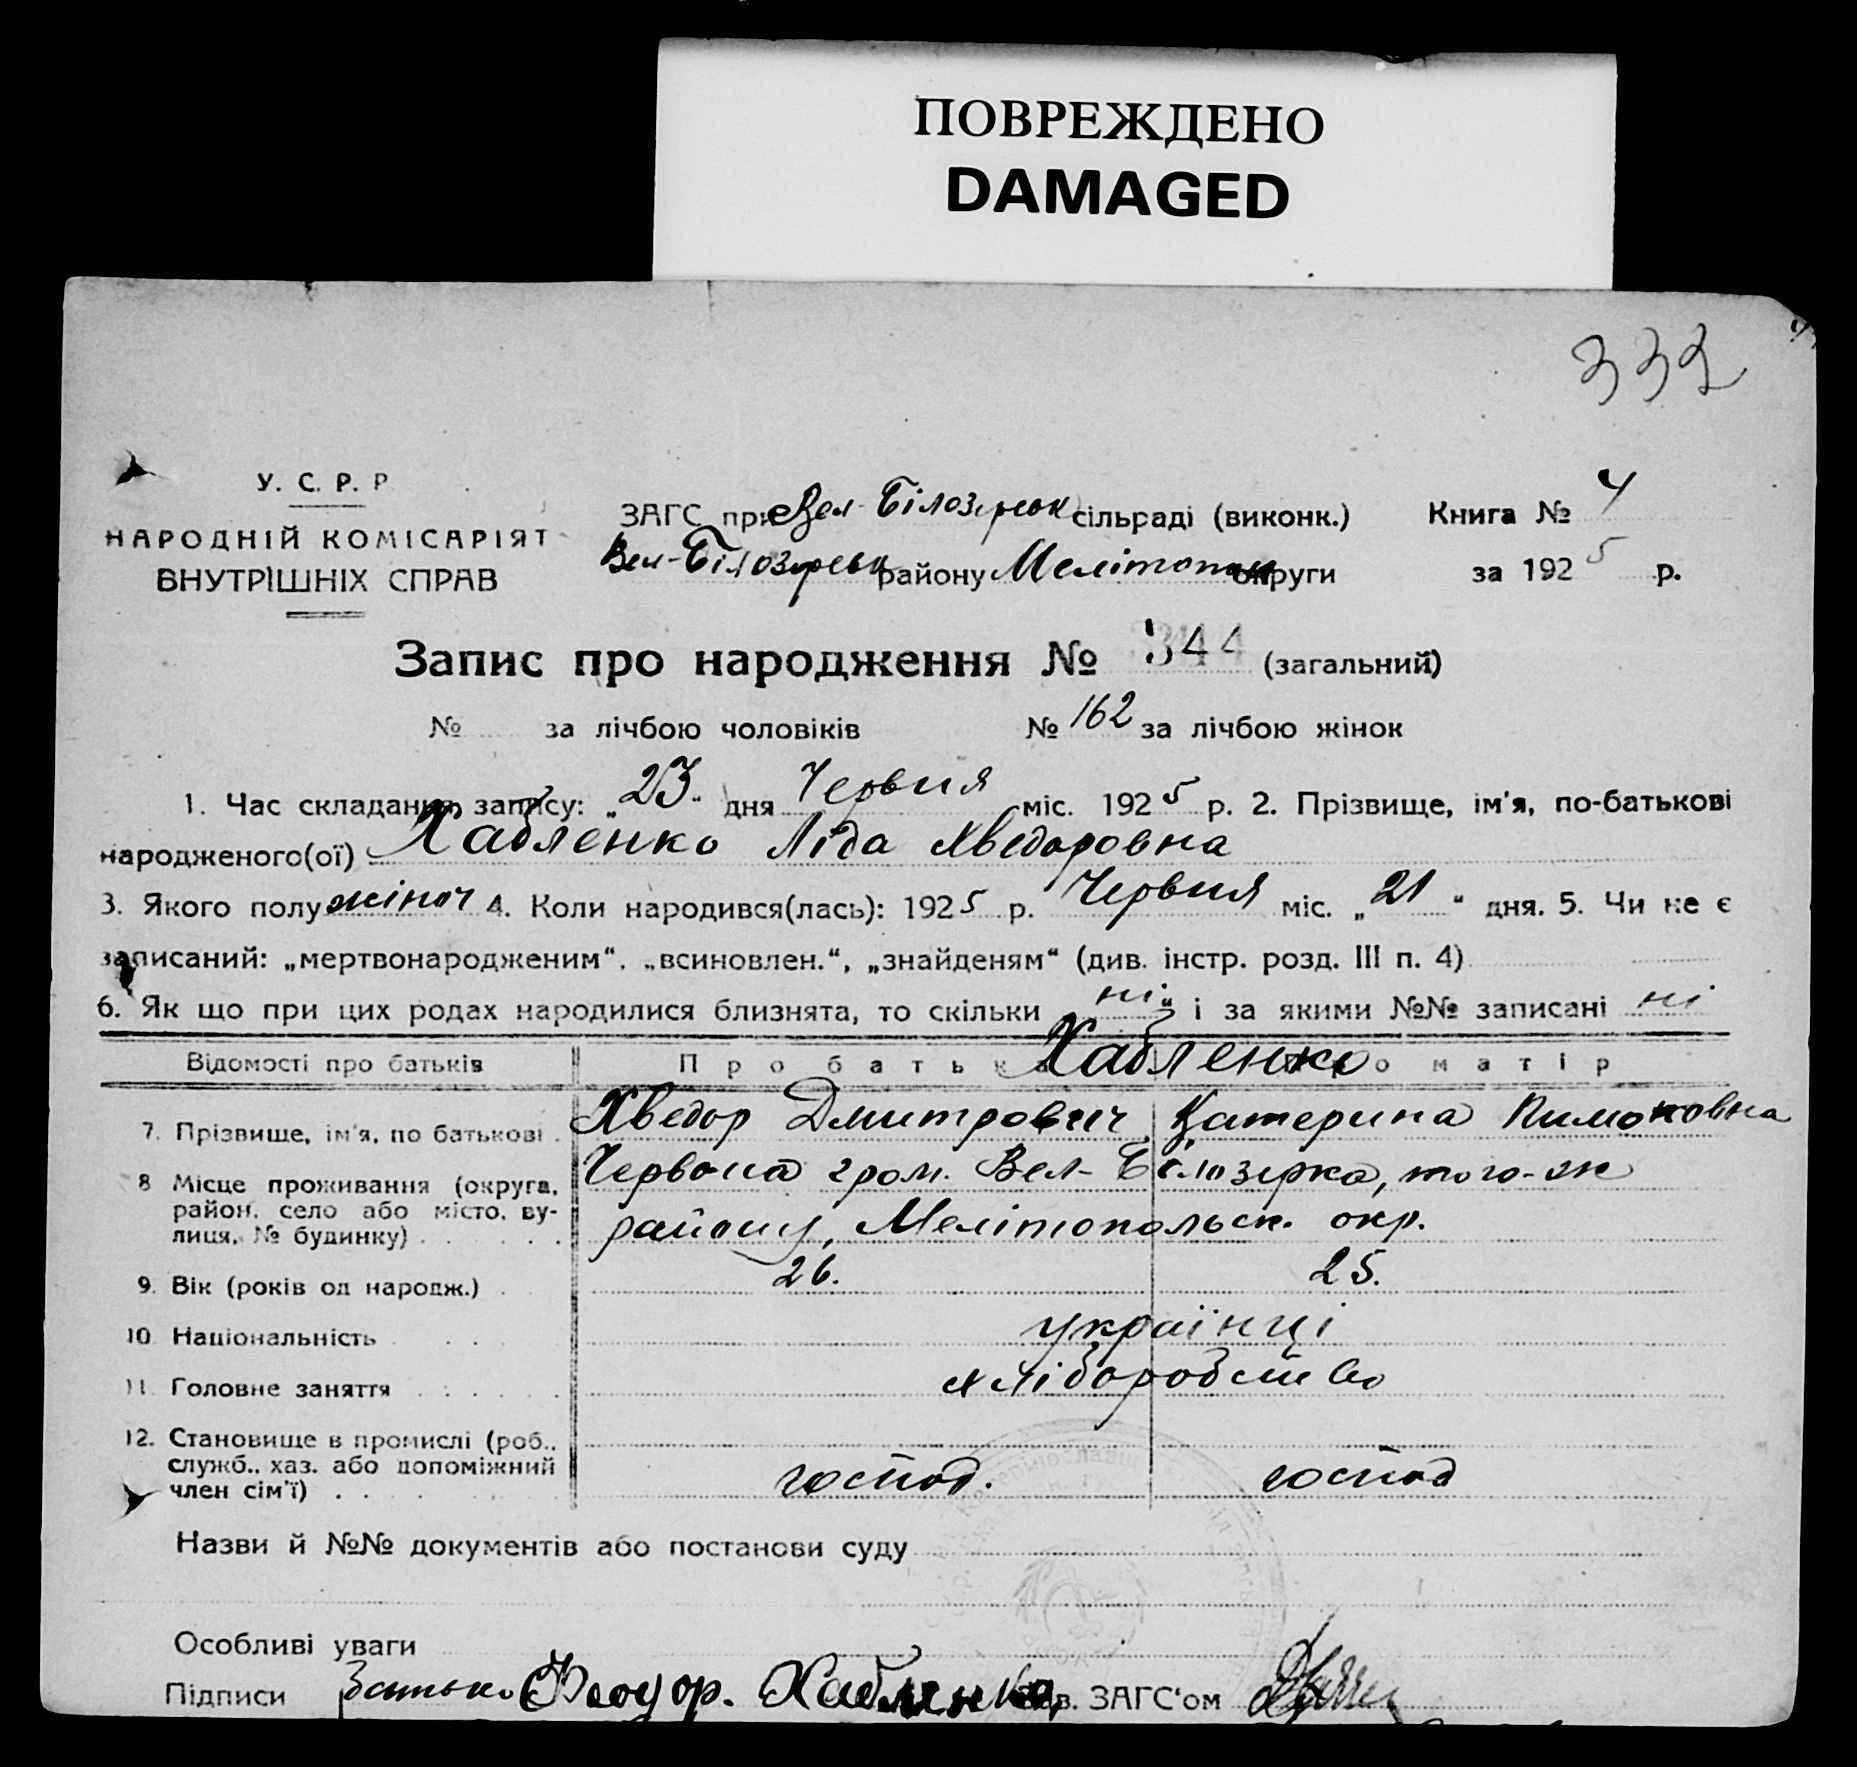 ПОВРЕЖДЕНО
DAMAGED
332
У. С. Р. Р.
НАРОДНІЙ КОМІСАРІЯТ
ВНУТРІШНІХ СПРАВ
ЗАГС при Вел-Білозерськ сільраді (виконк.) Книга № 4
Вел-Білозерськ району Мелітопол округи за 1925 р.
Запис про народження № 344 (загальний)
№ за лічбою чоловіків № 162 за лічбою жінок
1. Час складання запису: „23" дня Червня міс. 1925 р. 2. Прізвище, ім'я, по-батькові
народженого(ої) Хабленко Ліда Хведоровна
3. Якого полу жіноч 4. Коли народився(лась): 1925 р. Червня міс. „21" дня. 5. Чи не є
записаний: „мертвонародженим", „всиновлен.", „знайденям" (див. інстр. розд. III п. 4)
6. Як що при цих родах народилися близнята, то скільки ні і за якими №№ записані ні
Відомості про батьків Про батька Про матір
Хабленко
7. Прізвище, ім'я, по батькові . Хведор Дмитрович Катерина Пимоновна
8 Місце проживання (округа, Червона гром. Вел-Білозірка, того-ж
район, село або місто, ву-
лиця, № будинку) району, Мелітопольск. окр.
9. Вік (років од народж.) 26. 25.
10 Національність українці
11. Головне заняття хліборобство
12. Становище в промислі (роб.,
служб., хаз. або допоміжний
член сім'ї) господ. господ
Назви й №№ документів або постанови суду
Особливі уваги
Підписи Батько Феодор. Хабленко Зав. ЗАГС'ом